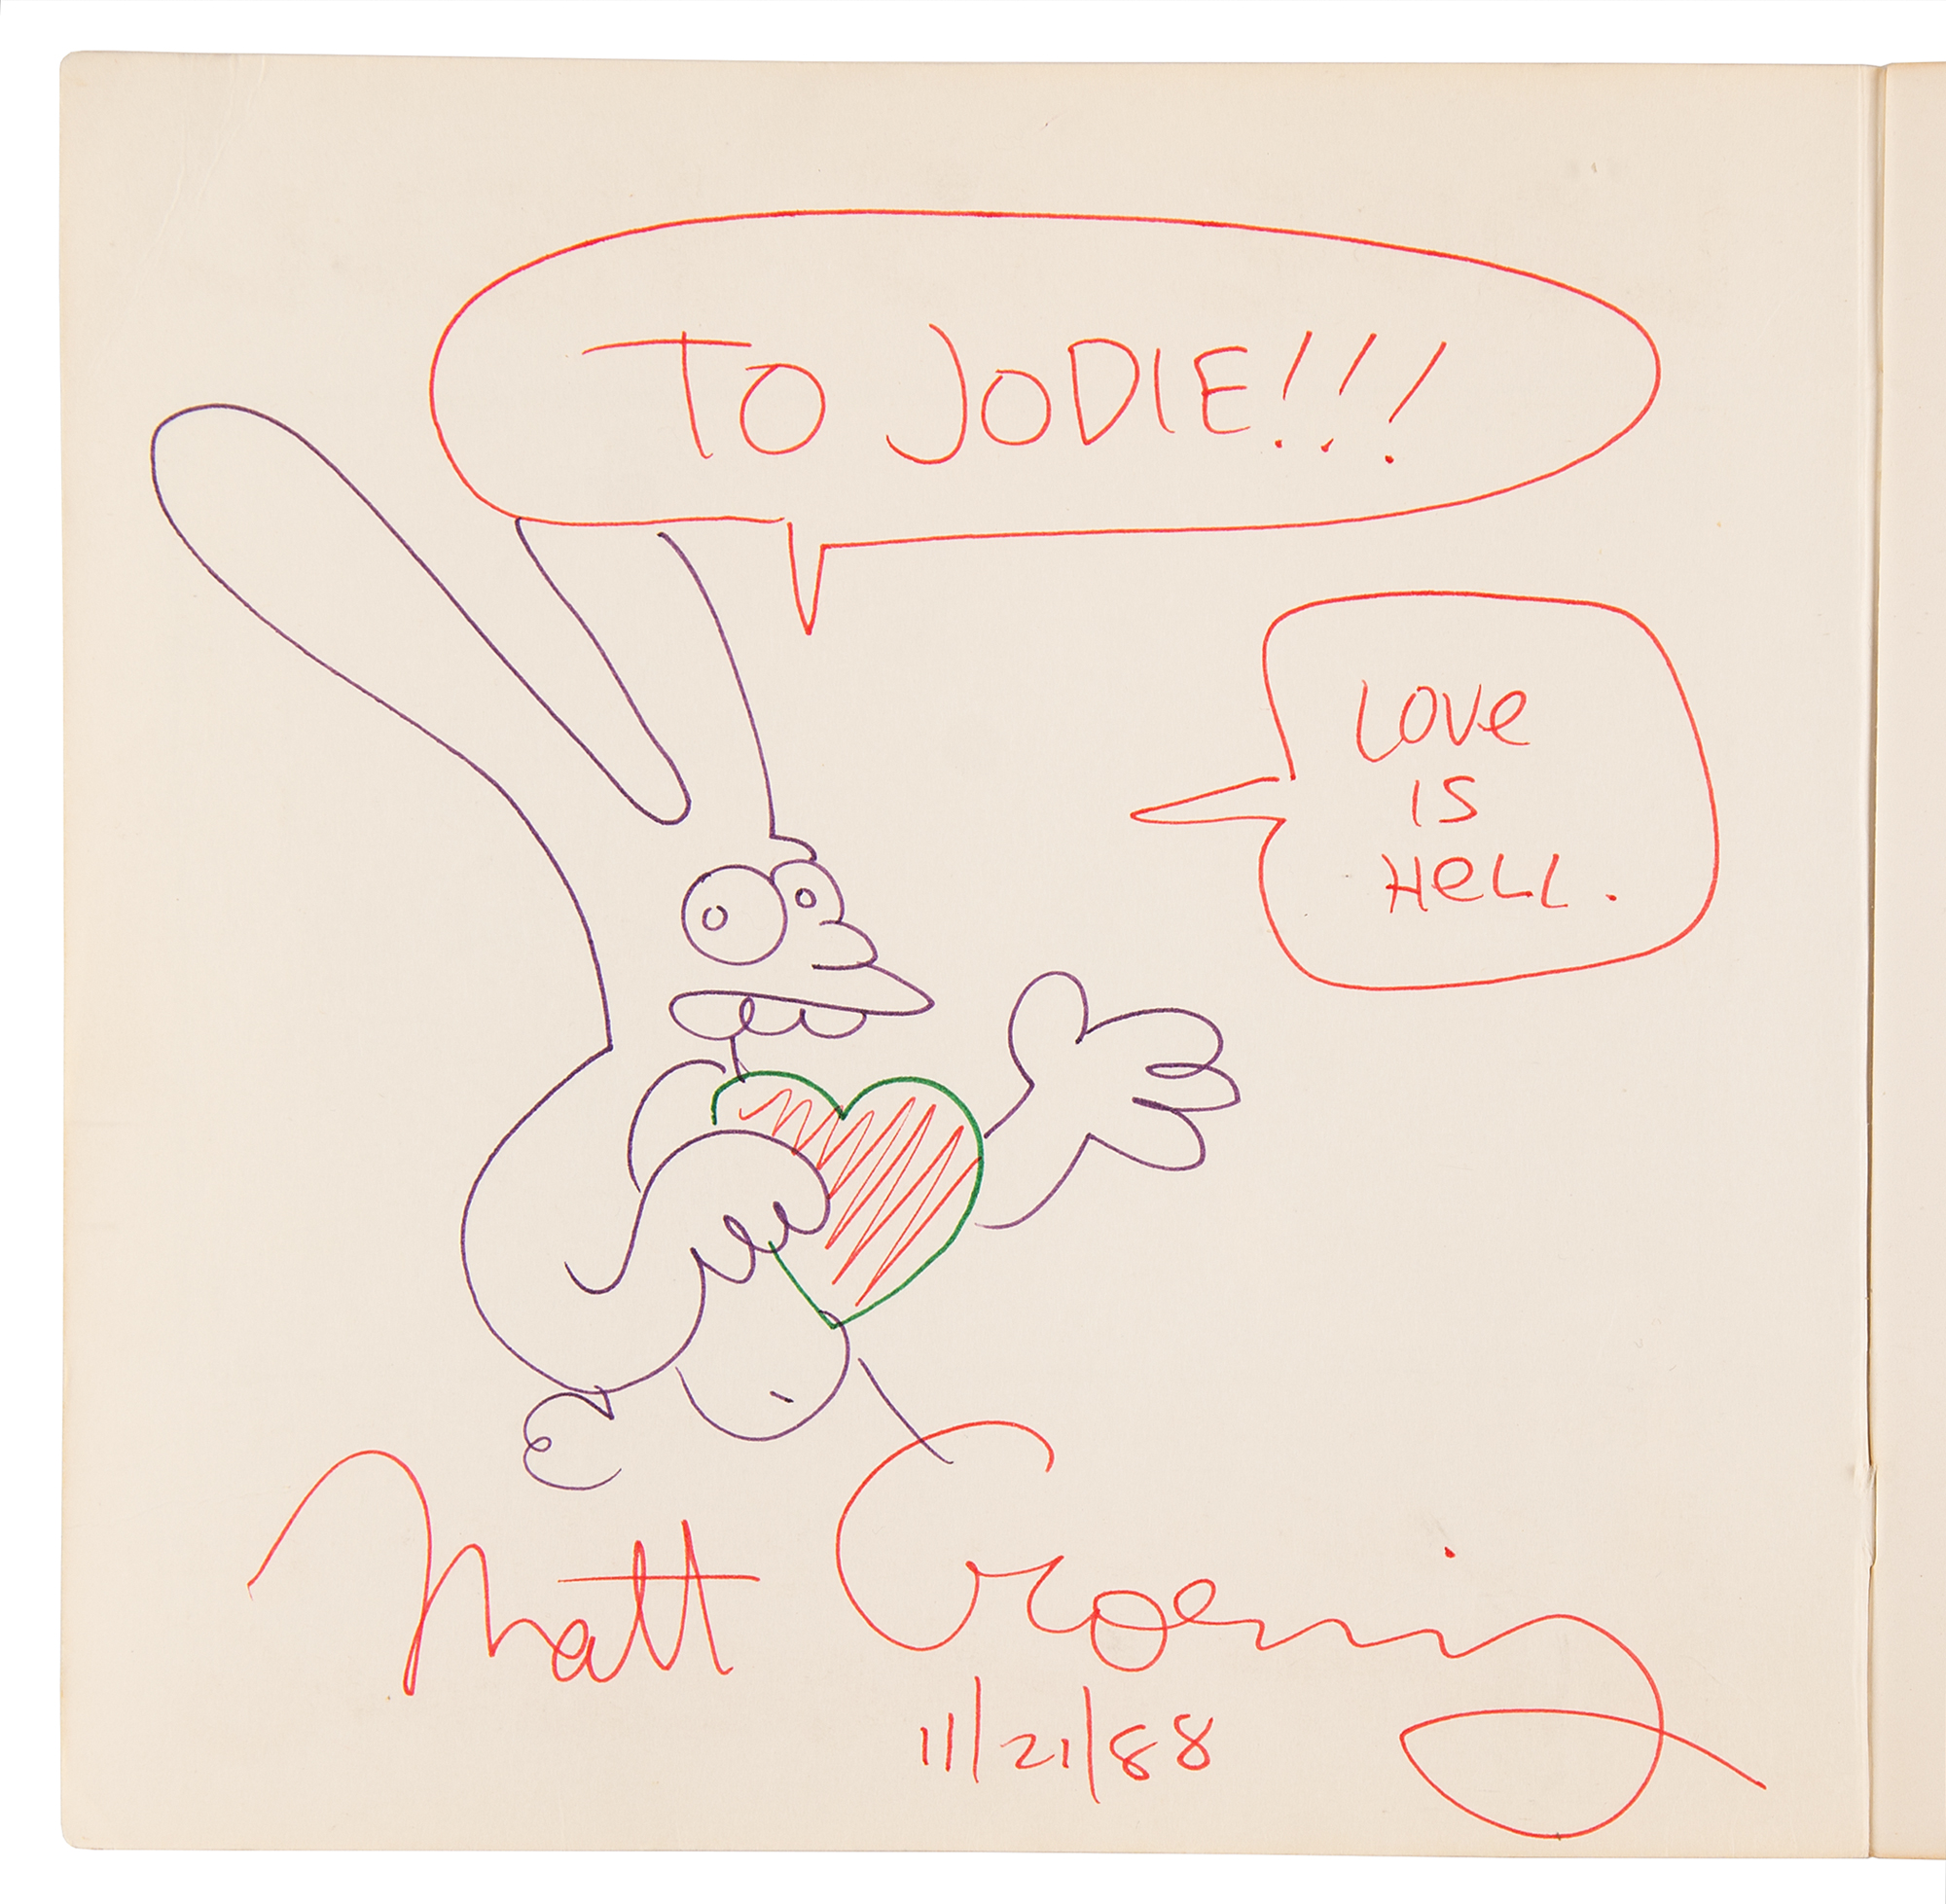 TO JODIE!!!
Love
is
Hell.
Matt Groening
11/21/88